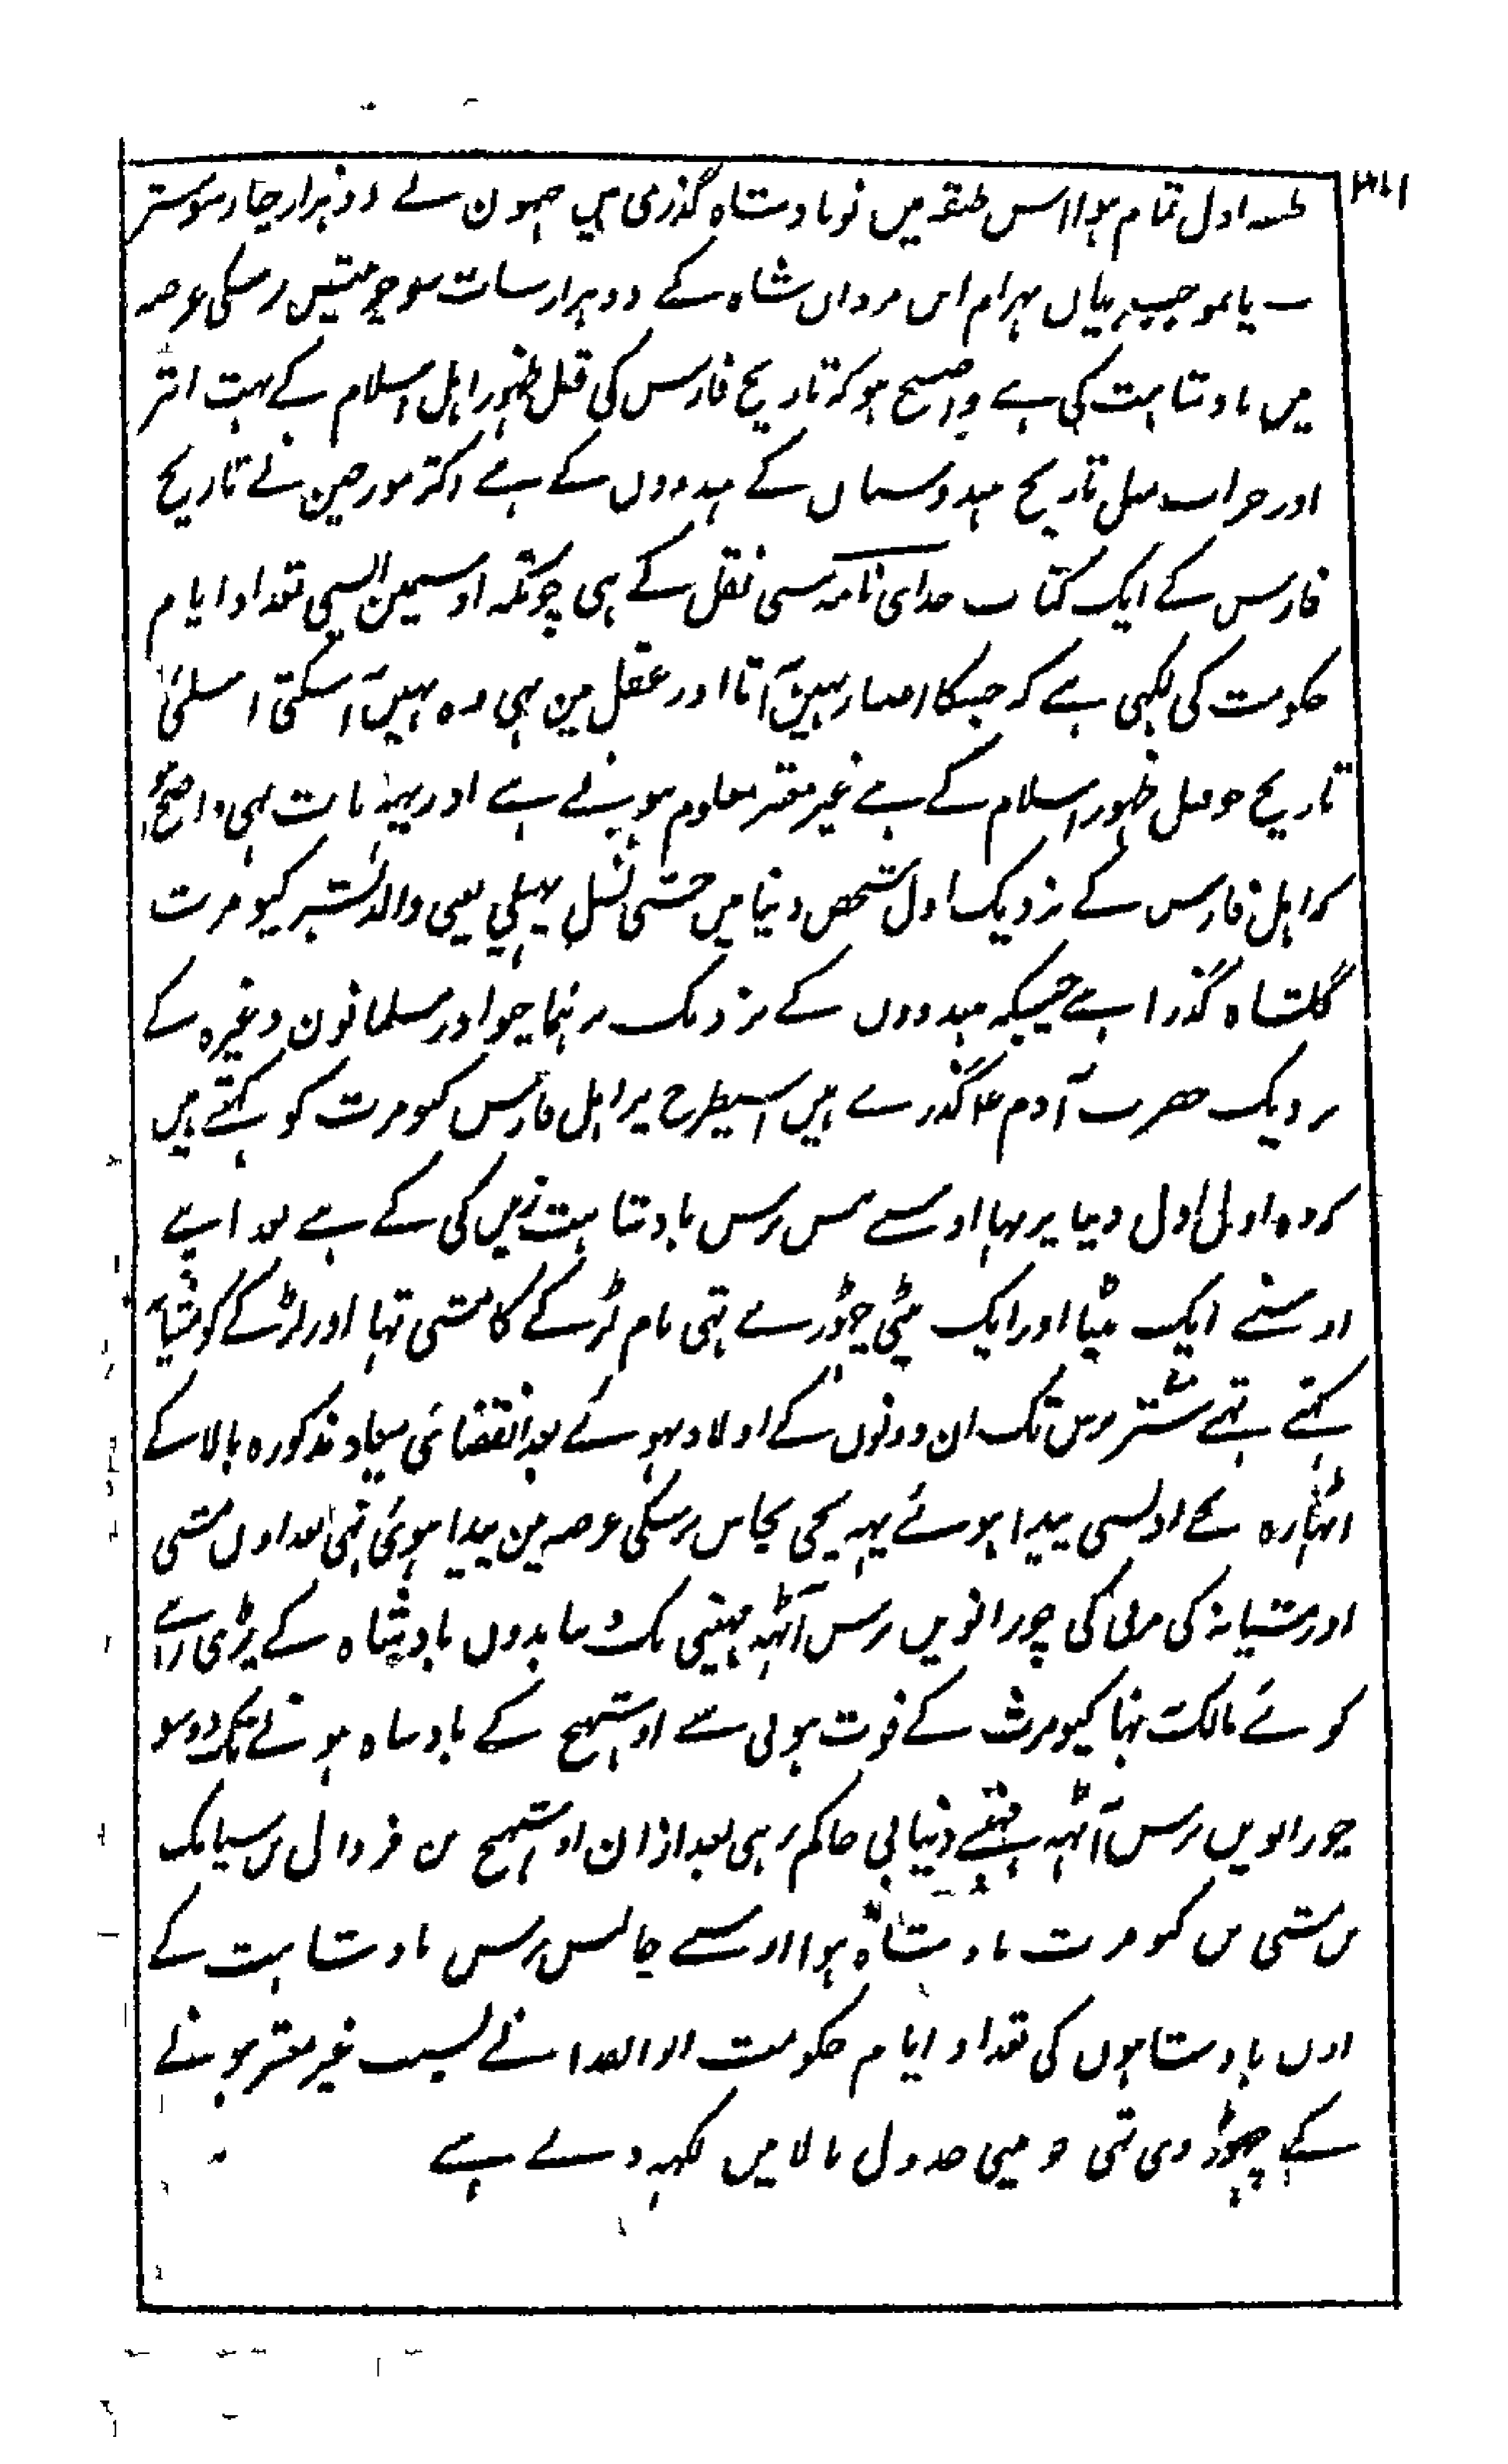 ۳۲۱
طبقہ اول تمام ہوا اس طبقہ میں نو بادشاہ گذری ہی جہون نے دو ہزار چار سو ستر
یا بموجب بیان بہرام ابن مردان شاہ کے دو ہزار سات سو چونتیس برسکی عرصہ
میں بادشاہت کی ہے واضح ہو کہ تاریخ فارس کی قبل ظہور اہل اسلام کے بہت ابتر
اور خراب مثل تاریخ ہندوستان کے ہندوون کے ہے اکثر مورخین نے تاریخ
فارس کے ایک کتاب خدای نامہ سی نقل کے ہی چونکہ اوسمین ایسی تعداد ایام
حکومت کی لکہی ہے کہ جسکا اعتبار نہین آتا اور عقل مین بہی وہ نہیں آسکتی اسلئ
تاریخ جو قبل ظہور اسلام کے ہے غیر معتبر معلوم ہوینے ہے اور یہہ بات بہی واضح ہو
کہ اہل فارس کے نزدیک اول شخص دنیا میں جسّی نسل پہیلی یعنی والد بشر کیومرت
گلشاہ گذرا ہے جیسیکہ ہندوون کے نزدیک برہما جو اور مسلمانون وغیرہ کے
نزدیک حضرت آدم ع گذرے ہیں اسیطرح پر اہل فارس کیومرت کو کہتے ہیں
کہ وہ اول اول دنیا پر تہا اوسے تیس برس بادشاہت زمین کی کے ہے بعد اپنے
اوسنے ایک بیٹا اور ایک بیٹی چہوڑے تہی نام لڑکے کا مشی تہا اور لڑکے کو مشیانہ
کہتے تہے ستر برس تک ان دونوں کے اولاد نہوئے بعد انقضائی میعاد مذکورہ بالا کے
اٹہارہ بچے اونسی پیدا ہوئے یہہ بچی پچاس برسکی عرصہ مین پیدا ہوئی تہی بعد اون مشی
اور مشیانہ کی مرنی کی چورانوین برس آٹہہ مہینی تک دنیا بدون بادشاہ کے پڑی رہی
کوئے مالک نہتا کیومرث کے فوت ہونی سے اوشہنج کے بادشاہ ہونے تک دو سو
چورانویں برس آٹہہ مہینے دنیا بی حاکم رہی بعد ازان اوشہنج بن فردال بن سیامک
بن مشی بن کیومرت بادشاہ ہوا اوسے چالیس برس بادشاہت کے
اون بادشاہوں کی تعداد ایام حکومت ابو الفدا نے بسبب غیر معتبر ہونے
کے چہوڑ دی تہی وہ مینی جدول بالا میں لکہہ دے ہے